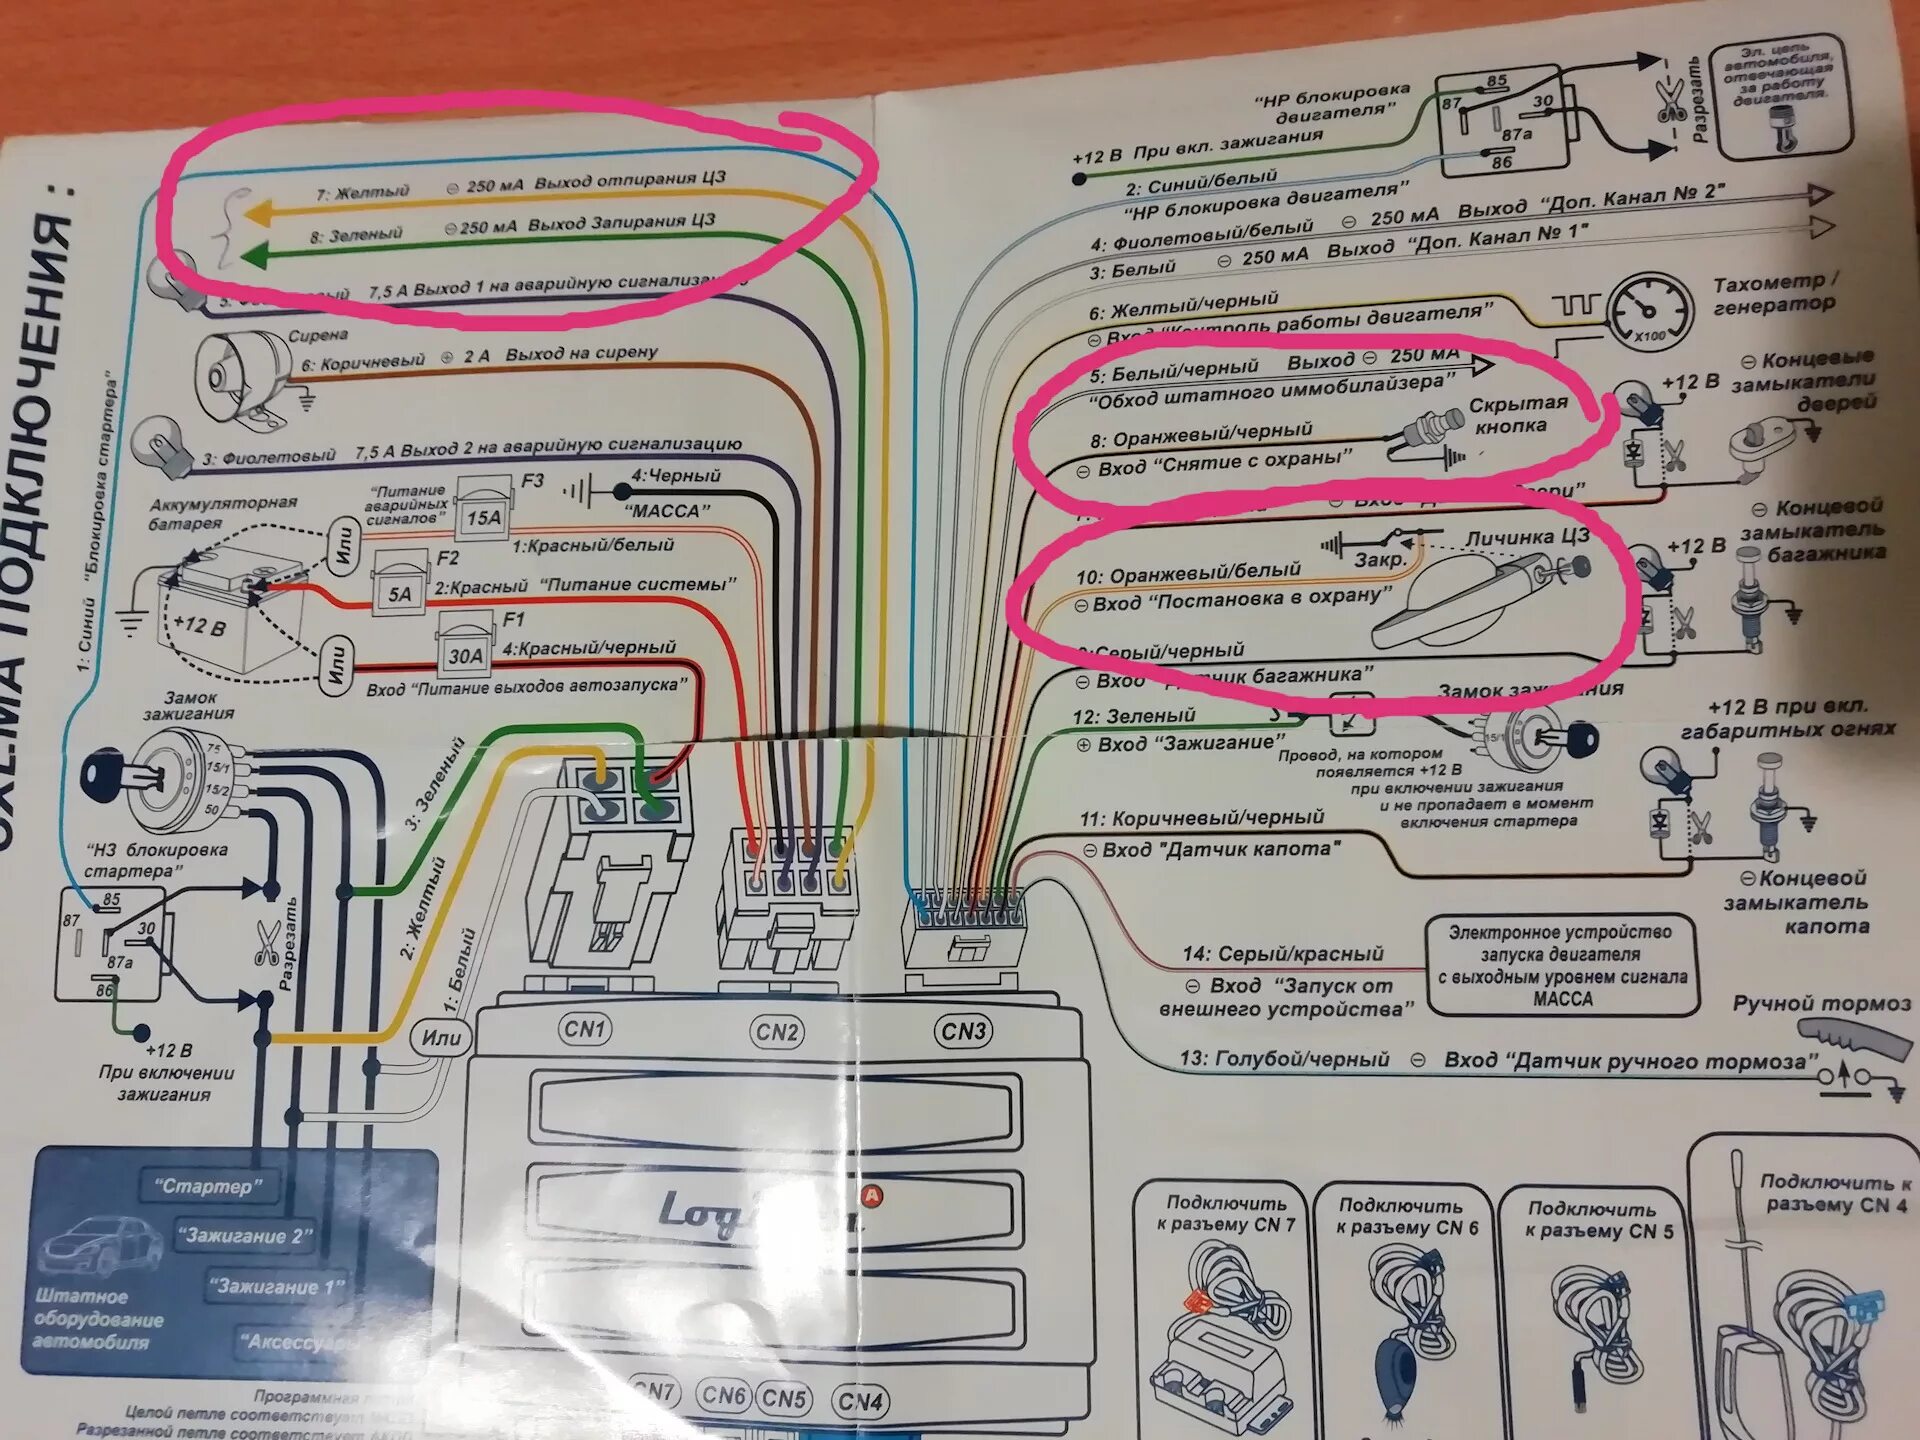 СХЕМА ПОДКЛЮЧЕНИЯ :
7: Желтый ⊖ 250 мА Выход отпирания ЦЗ
8: Зеленый ⊖ 250 мА Выход Запирания ЦЗ
7,5 А Выход 1 на аварийную
Сирена
6: Коричневый ⊕ 2 А Выход на сирену
3: Фиолетовый 7,5 А Выход 2 на аварийную сигнализацию
1: Синий "Блокировка стартера"
Аккумуляторная
батарея
+12 В
Или
Или
"Питание
аварийных
сигналов"
F3
15А
4:Черный
"МАССА"
1:Красный/белый
F2
5А
2:Красный "Питание системы"
F1
30А
4:Красный/черный
Вход "Питание выходов автозапуска"
Замок
зажигания
75
15/1
15/2
50
3: Зеленый
2: Желтый
1: Белый
Или
"НЗ блокировка
стартера"
85
87
30
87а
86
Разрезать
+12 В
При включении
зажигания
"Стартер"
"Зажигание 2"
"Зажигание 1"
"Аксессуары
Штатное
оборудование
автомобиля
Программная
Целой петле соответствует
Разрезанной петле соответствует АКПП
"НР блокировка
двигателя"
+12 В При вкл. зажигания
85
87
30
87а
86
Разрезать
Эл. цепь
автомобиля,
отвечающая
за работу
двигателя.
2: Синий/белый
"НР блокировка двигателя"
4: Фиолетовый/белый ⊖ 250 мА Выход "Доп. Канал № 2"
3: Белый ⊖ 250 мА Выход "Доп. Канал № 1"
6: Желтый/черный
⊖ Вход "Контроль работы двигателя"
Тахометр /
генератор
X100
5: Белый/черный Выход ⊖ 250 мА
"Обход штатного иммобилайзера"
8: Оранжевый/черный
⊖ Вход "Снятие с охраны"
Скрытая
кнопка
⊖ Концевые
замыкатели
дверей
+12 В
⊖ Вход
10: Оранжевый/белый
⊖ Вход "Постановка в охрану"
Закр.
Личинка ЦЗ
⊖ Концевой
замыкатель
багажника
+12 В
9: Серый/черный
⊖ Вход "Датчик багажника"
12: Зеленый
⊕ Вход "Зажигание"
Замок зажигания
15/1
Провод, на котором
появляется +12 В
при включении зажигания
и не пропадает в момент
включения стартера
+12 В при вкл.
габаритных огнях
11: Коричневый/черный
⊖ Вход "Датчик капота"
⊖ Концевой
замыкатель
капота
14: Серый/красный
⊖ Вход "Запуск от
внешнего устройства"
Электронное устройство
запуска двигателя
с выходным уровнем сигнала
МАССА
Ручной тормоз
13: Голубой/черный ⊖ Вход "Датчик ручного тормоза"
CN1
CN2
CN3
A
CN7
CN6
CN5
CN4
Подключить
к разъему CN 7
Подключить
к разъему CN 6
Подключить
к разъему CN 5
Подключить к
разъему CN 4